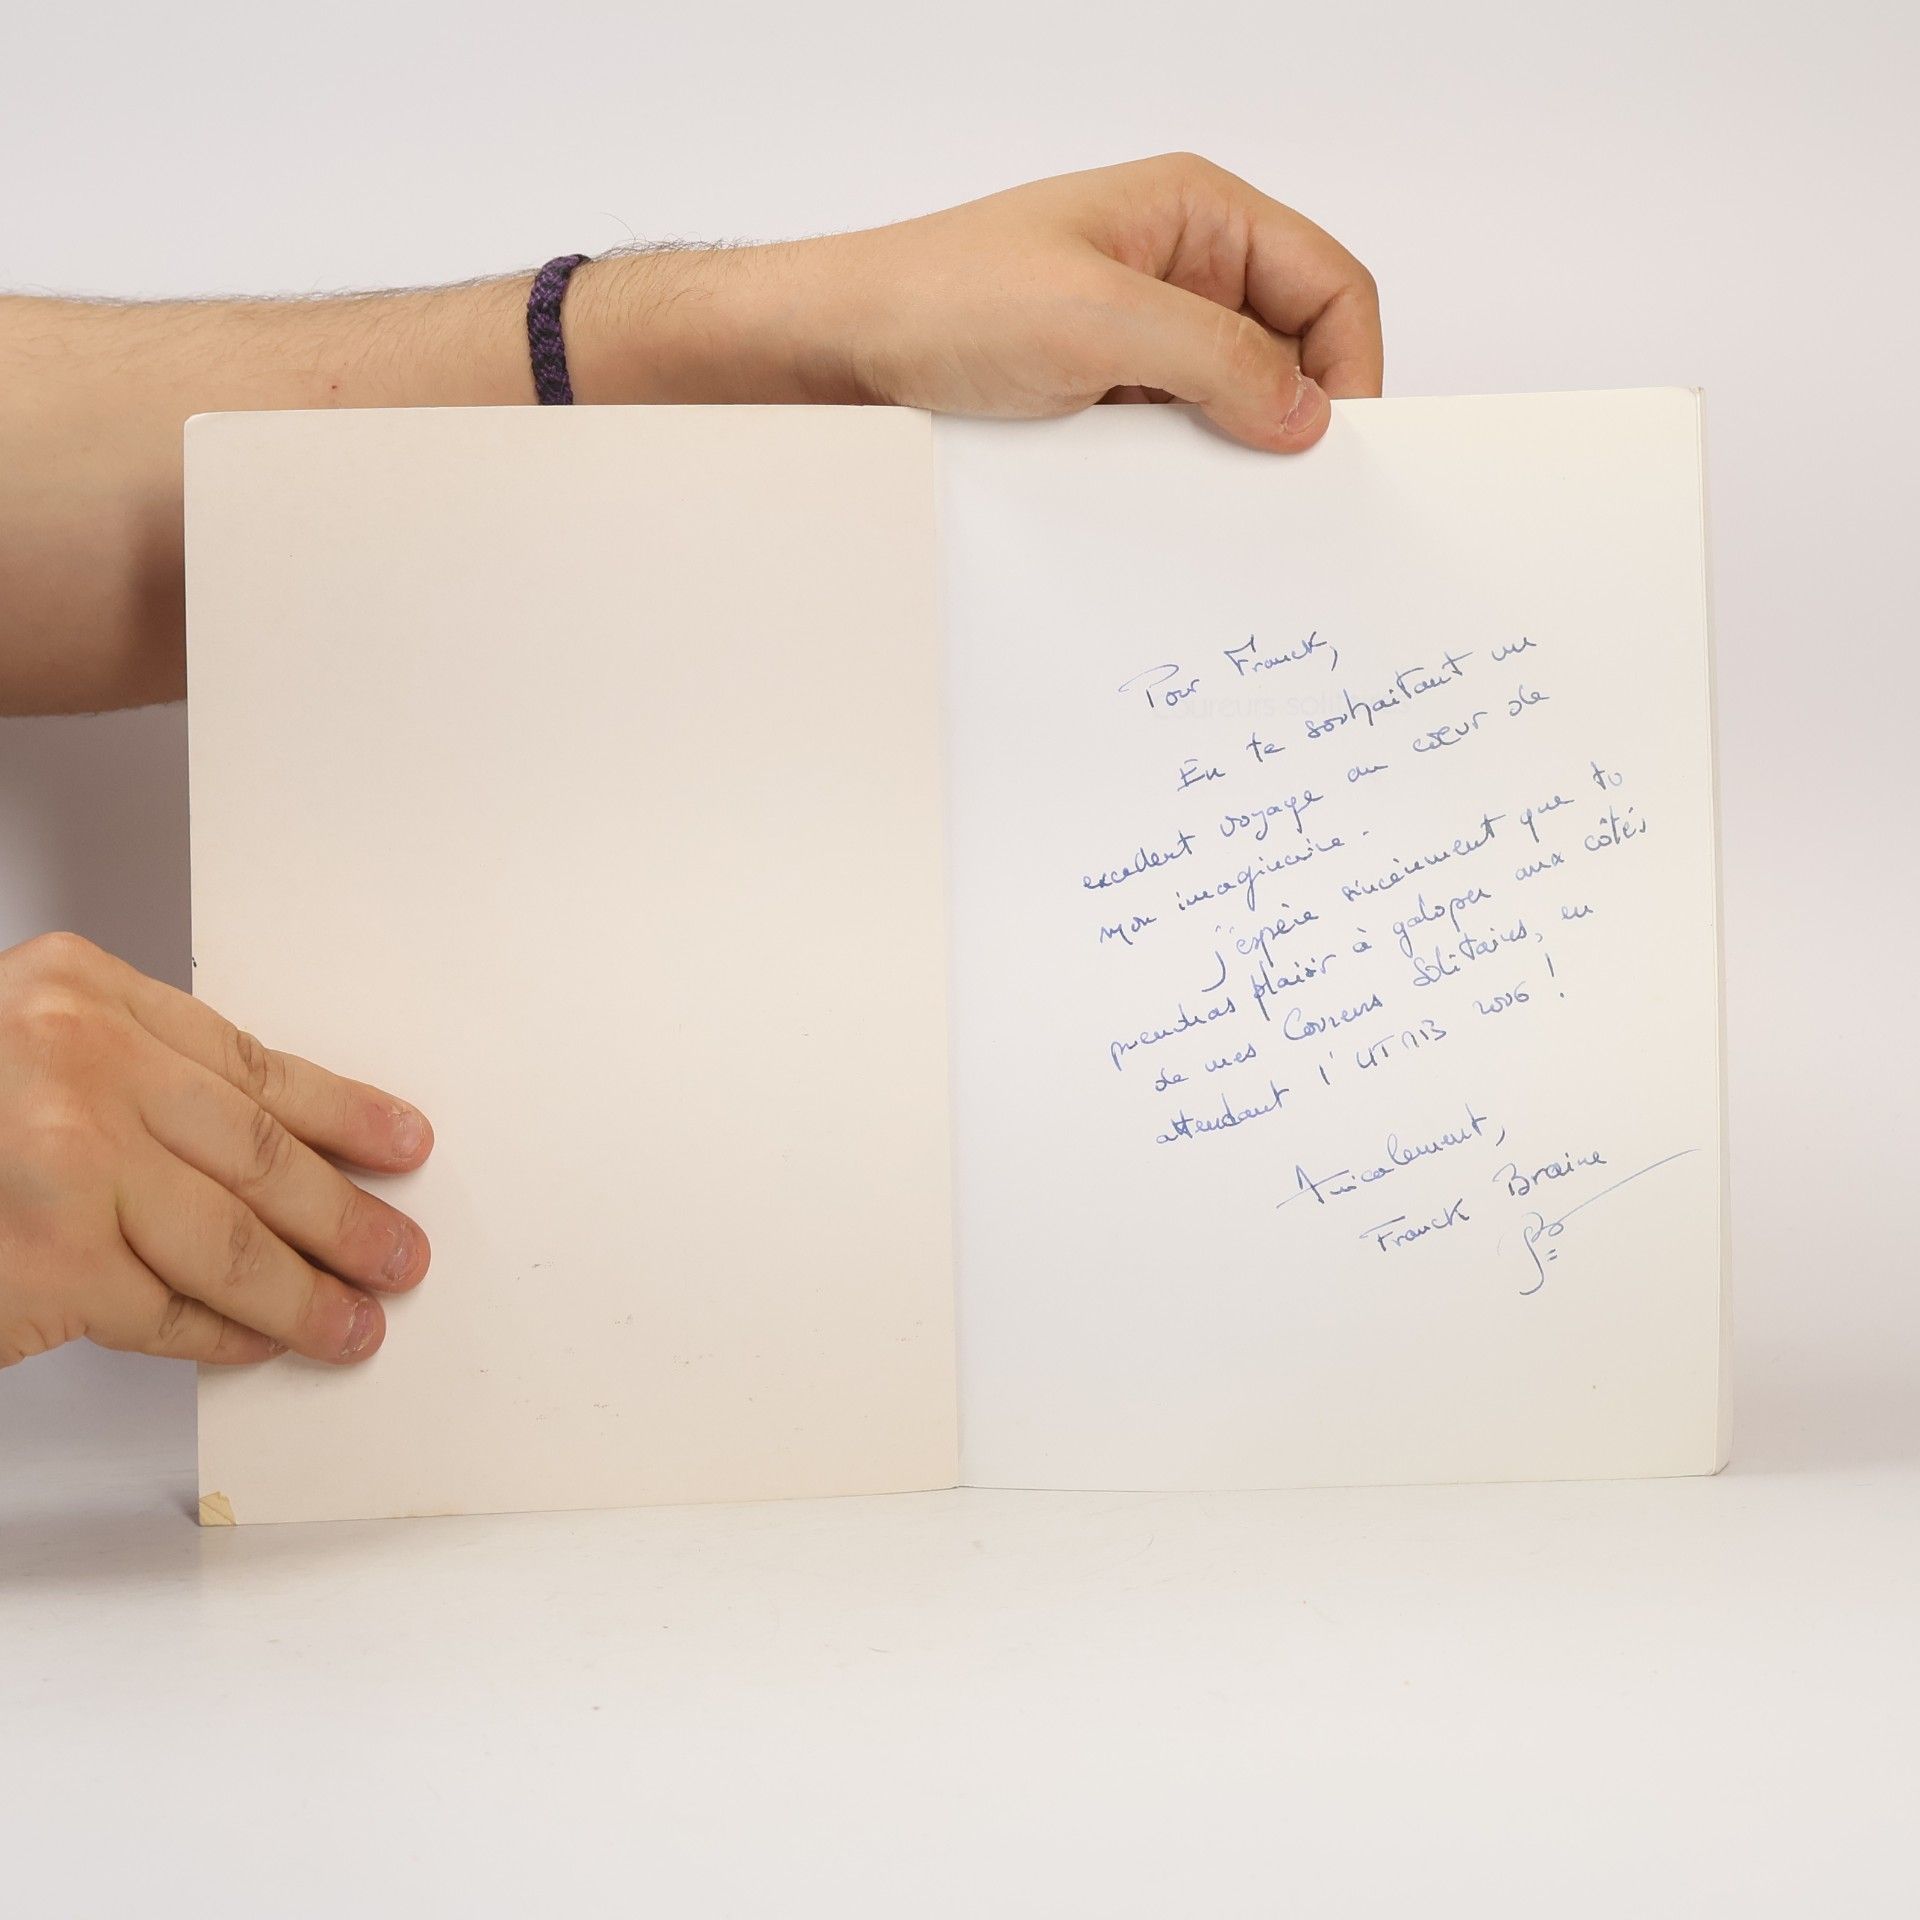 Pour Franck,
En te souhaitant un
excellent voyage au cœur de
mon imaginaire.
J'espère sincèrement que tu
prendras plaisir à galoper aux côtés
de mes Coureurs solitaires, en
attendant l'UTMB 2006 !
Amicalement,
Franck Braine
coureurs solitaires